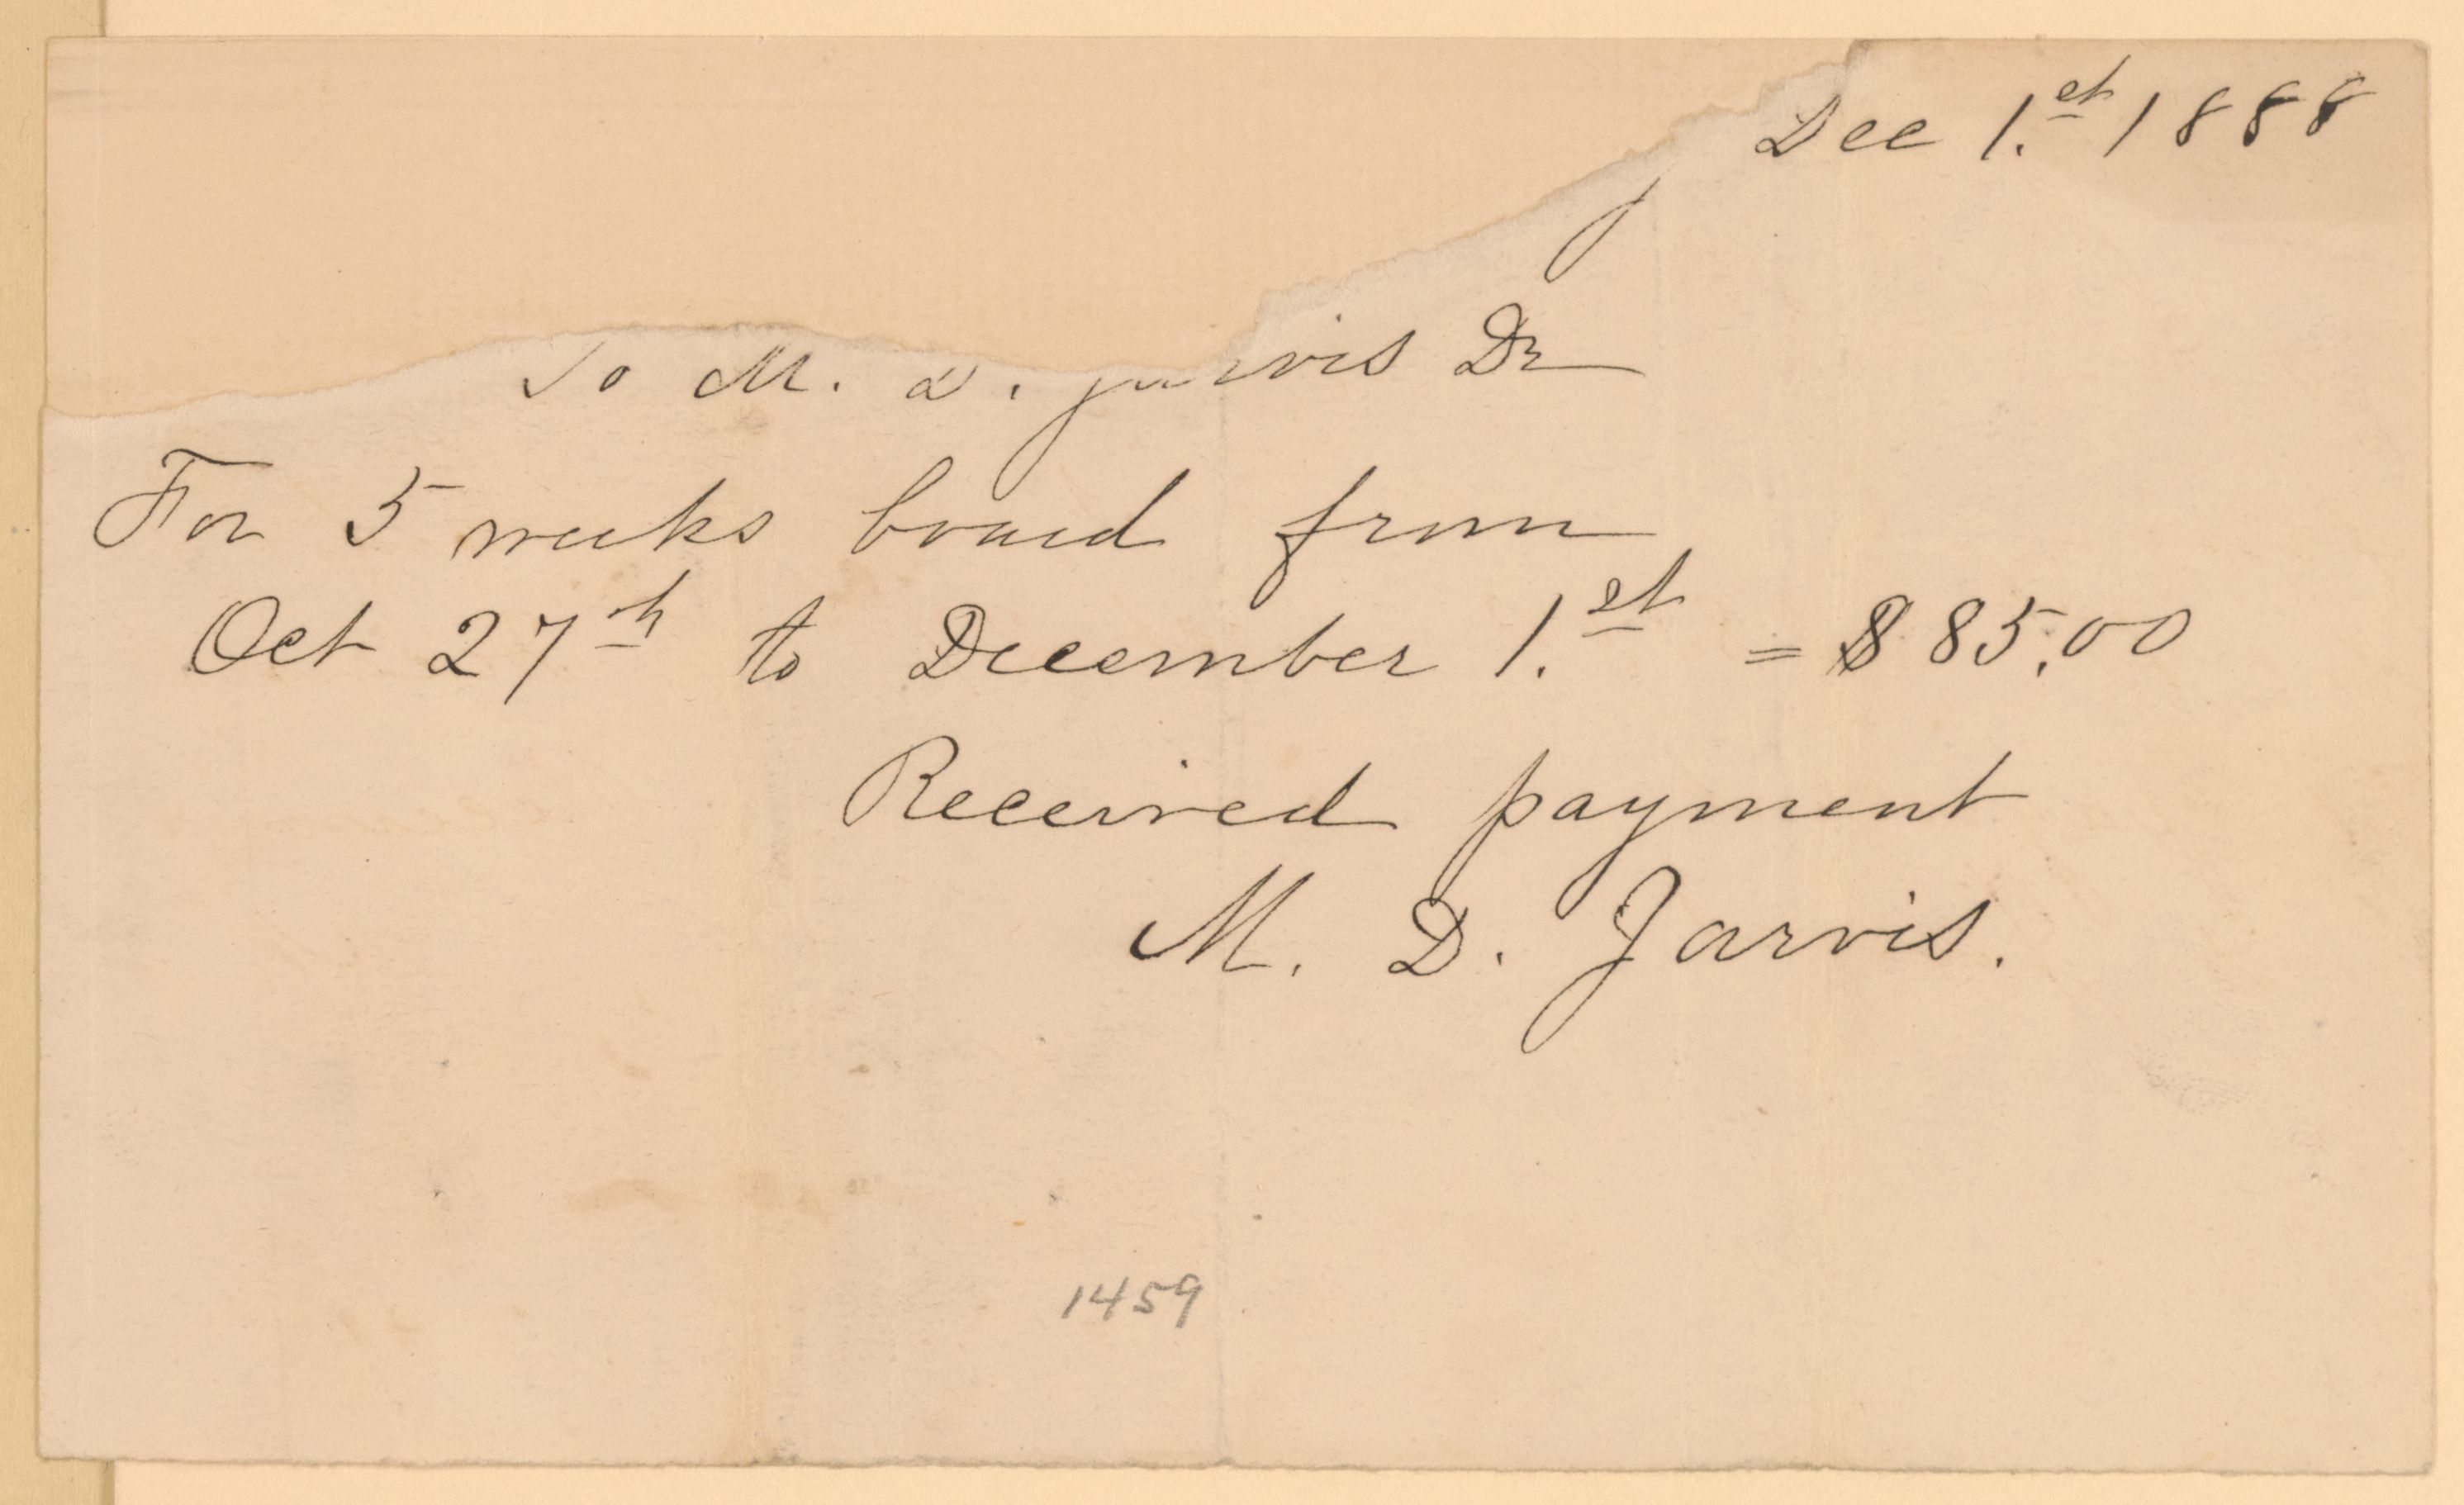 Dec 1.st 1888
To M. D. Jarvis Dr
For 5 weeks board from
Oct 27th to December 1.st = $85.00
Received payment
M. D. Jarvis.
1459